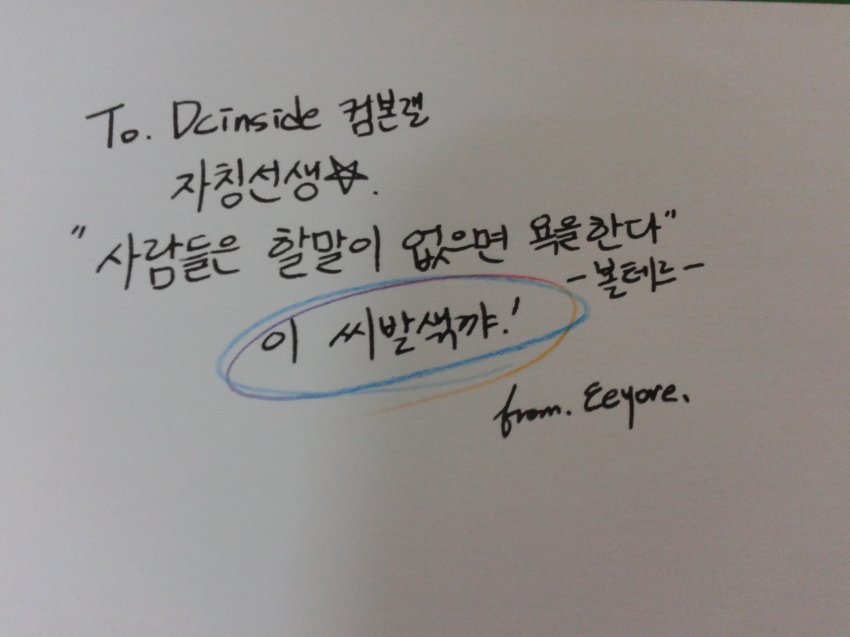 To. Dcinside 컴본갤
자칭선생☆.
"사람들은 할말이 없으면 욕을한다"
-볼테르-
이 씨발색꺄!
from. Eeyore.